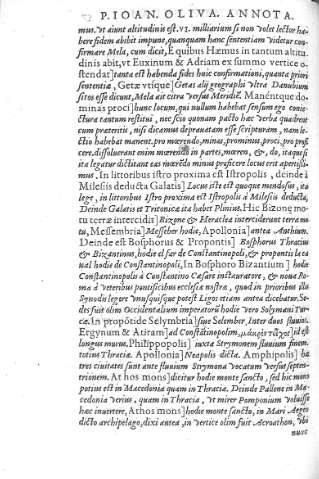 P. IOAN. OLIVA. ANNOTA.
mus. vt aiunt altitudinis est. v3. milliarium si non volet lector ha-
bere fidem abibit impune, quanquam hanc sententiam videtur con-
firmare Mela, cum dicit, E quibus Hæmus in tantum altitu
dinis abit, vt Euxinum & Adriam ex summo vertice o-
stendat] tanta est habenda fides huic confirmationi, quanta priori
sententiæ, Getæ vtique] Getas alij geographi vltra Danubium
sitos esse dicunt, Mela ait citra versus Meridiē. Manéntque do-
minas proci] hunc locum, qui nullum habebat sensum ego conie-
ctura tantum restitui, nec scio quonam pacto hæc verba quadrent
cum præteritis, nisi dicamus deprauatam esse scripturam, nam le-
ctio habebat manent. pro mærendo, minas, prominas, proci, pro profi
cere, dissoluerant enim mærendo in partes, mæren, &, do, itaque si
ita legatur dictitant eas mærendo minus proficere locus erit apertissi-
mus, In littoribus istro proxima est Istropolis, deinde à
Milesiis deducta Galatis] Locus iste est quoque mendosus, ita
lege, in littoribus Istro proxima est Istropolis à Milesiis deducta,
Deinde Galatis at Trionicæ ita habet Plinius. Hic Bizone mo-
tu terræ intercidit] Bizone & Heraclea interciderant terræ mo
tu, Messembria] Messeber hodie, Apollonia] antea Anthium.
Deinde est Bosphorus & Propontis] Bosphorus Thracius
& Bizantinus, hodie el far de Constantinopoli, & propontis la ca
nal hodie de Constantinopuli, In Bosphoro Bizantium] hodie
Constantinopolis à Constantino Cæsare instauratore, & noua Ro-
ma à veteribus pontificibus ecclesiæ nostræ, quod in prioribus illu
Synodis legere vnusquisque potest Ligos etiam antea dicebatur. Se-
des fuit olim Occidentalium imperatorū hodie vero Solymani Tur-
cæ. In propōtide Selymbria] siue Selember, Inter duos fluuios
Erginum & Atiram] ad Constantinopolim, μακρὸν τεῖχος] id est
longus murus, Philippopolis] iuxta Strymonem fluuium finem
totius Thraciæ. Apollonia] Neapolis dicta. Amphipolis] hæ
tres ciuitates sunt ante fluuium Strymona vocatum versus septen-
trionem. At hos mons] dicitur hodie monte sancto, sed hic mons
potius est in Macedonia quam in Thracia. Deinde Pallene in Ma-
cedonia verius, quam in Thracia, vt mirer Pomponium voluisse
hac inuertere, Athos mons] hodie monte sancto, in Mari Aegeo
dicto archipelago, dixi antea, in vertice olim fuit Acroathon, vbi
nunc